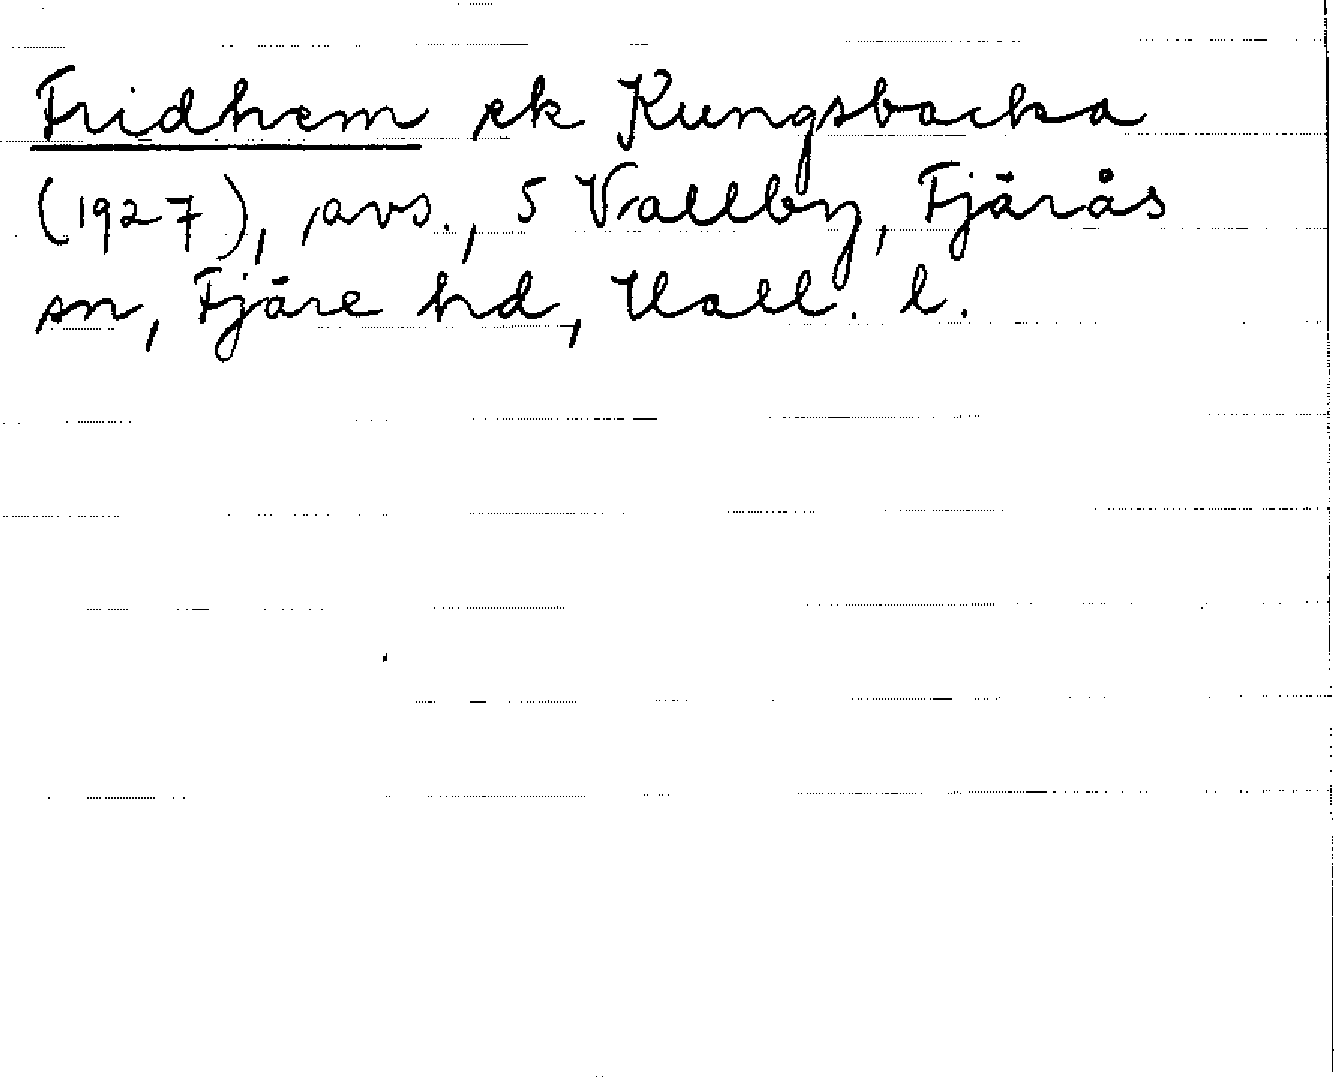 Fridhem ek Kungsbacka
(1927), avs., S Vallby, Fjärås
sn, Fjäre hd, Hall. l.